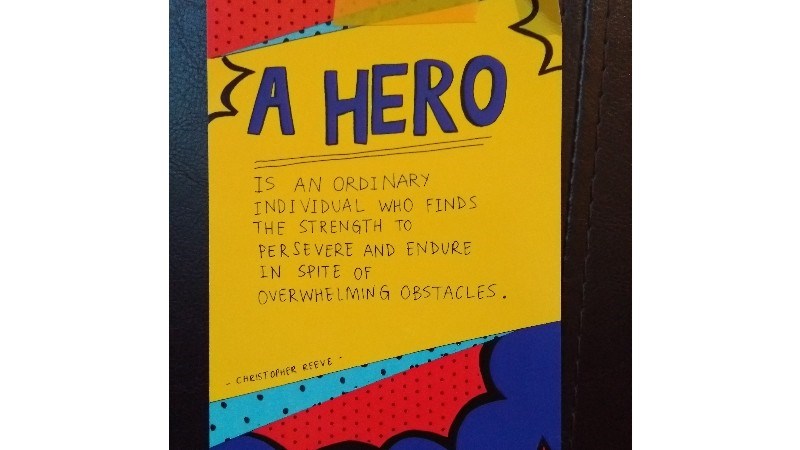 A HERO
IS AN ORDINARY
INDIVIDUAL WHO FINDS
THE STRENGTH TO
PERSEVERE AND ENDURE
IN SPITE OF
OVERWHELMING OBSTACLES.
- CHRISTOPHER REEVE -